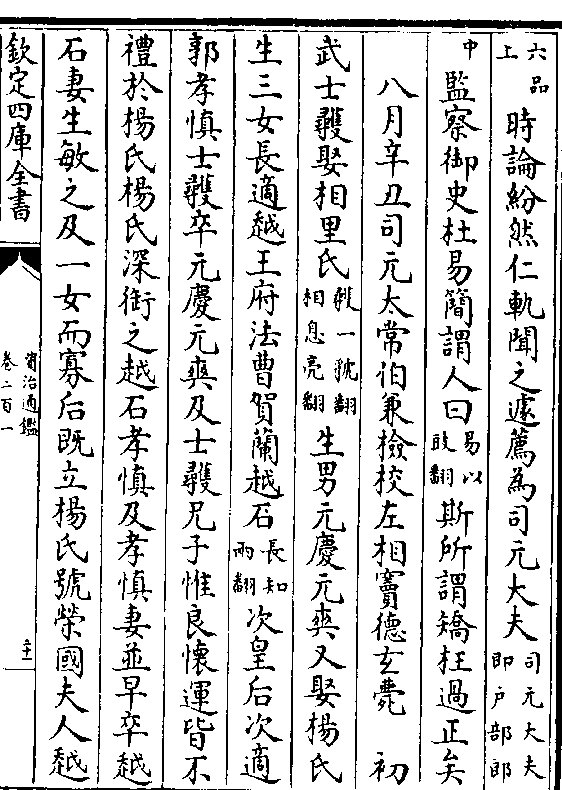 六品上時論紛然仁軌聞之遽薦為司元大夫司元大夫即戶部郎
中監察御史杜易簡謂人曰易以豉翻斯所謂矯枉過正矣
八月辛丑司元太常伯兼檢校左相竇德玄薨　初
武士彠娶相里氏彠一虢翻相息亮翻生男元慶元爽又娶楊氏
生三女長適越王府法曹賀蘭越石長知兩翻次皇后次適
郭孝慎士彠卒元慶元爽及士彠兄子惟良懷運皆不
禮於楊氏楊氏深銜之越石孝慎及孝慎妻並早卒越
石妻生敏之及一女而寡后既立楊氏號榮國夫人越
欽定四庫全書
資治通鑑
卷二百一
二十一